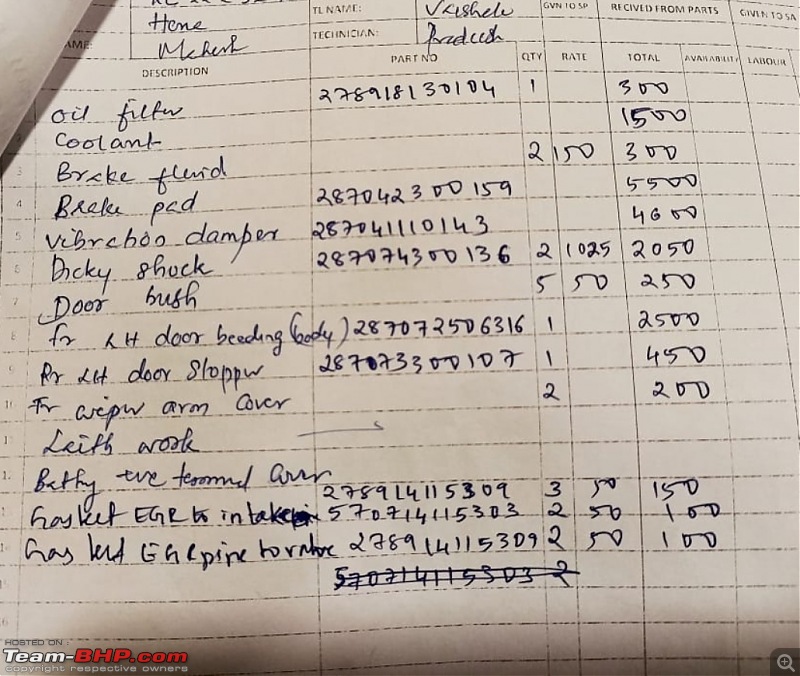 TL NAME: GVN TO SP RECIVED FROM PARTS GIVEN TO SA
Hone TECHNICIAN: Pradeesh
AME: Mahesh
DESCRIPTION PART NO QTY RATE TOTAL AVAILABILITY LABOUR
oil filter 278918130104 1 300
Coolant 1500
3 Brake fluid 2 150 300
4 Brake pad 287042300159 5500
5 vibration damper 287041110143 4600
6 Dicky shock 287074300136 2 1025 2050
7 Door bush 5 50 250
8 fr LH door beeding (body) 287072506316 1 2500
9 Rr LH door Stopper 287073300107 1 450
10 Fr wiper arm Cover 2 200
Leith work
Battry +ve terminal
278914115309 3 50 150
Gasket EGR to intake 570714115303 2 50 100
Gasket EGR pipe to 278914115309 2 50 100
570714115303 2
HOSTED ON :
Team-BHP.com
copyright respective owners